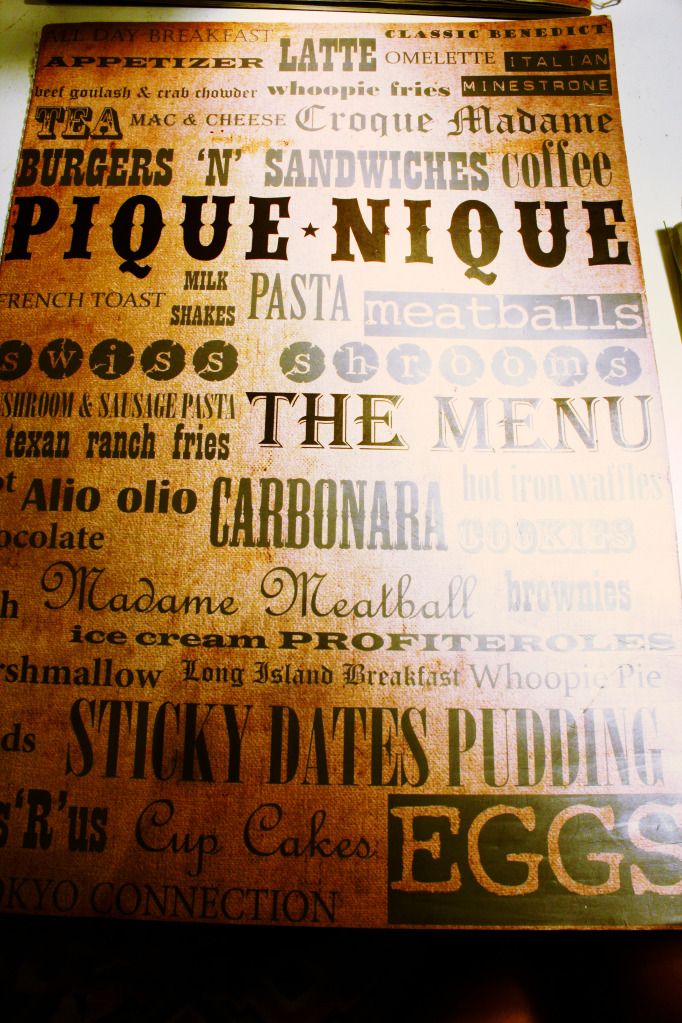 ALL DAY BREAKFAST LATTE CLASSIC BENEDICT
APPETIZER OMELETTE ITALIAN
beef goulash & crab chowder whoopie fries MINESTRONE
TEA MAC & CHEESE Croque Madame
BURGERS 'N' SANDWICHES coffee
PIQUE★NIQUE
FRENCH TOAST MILK SHAKES PASTA meatballs
swiss shrooms
SHROOM & SAUSAGE PASTA THE MENU
texan ranch fries
Alio olio CARBONARA hot iron waffles
ocolate COOKIES
h Madame Meatball brownies
ice cream PROFITEROLES
rshmallow Long Island Breakfast Whoopie Pie
ds STICKY DATES PUDDING
s'R'us Cup Cakes EGGS
OKYO CONNECTION